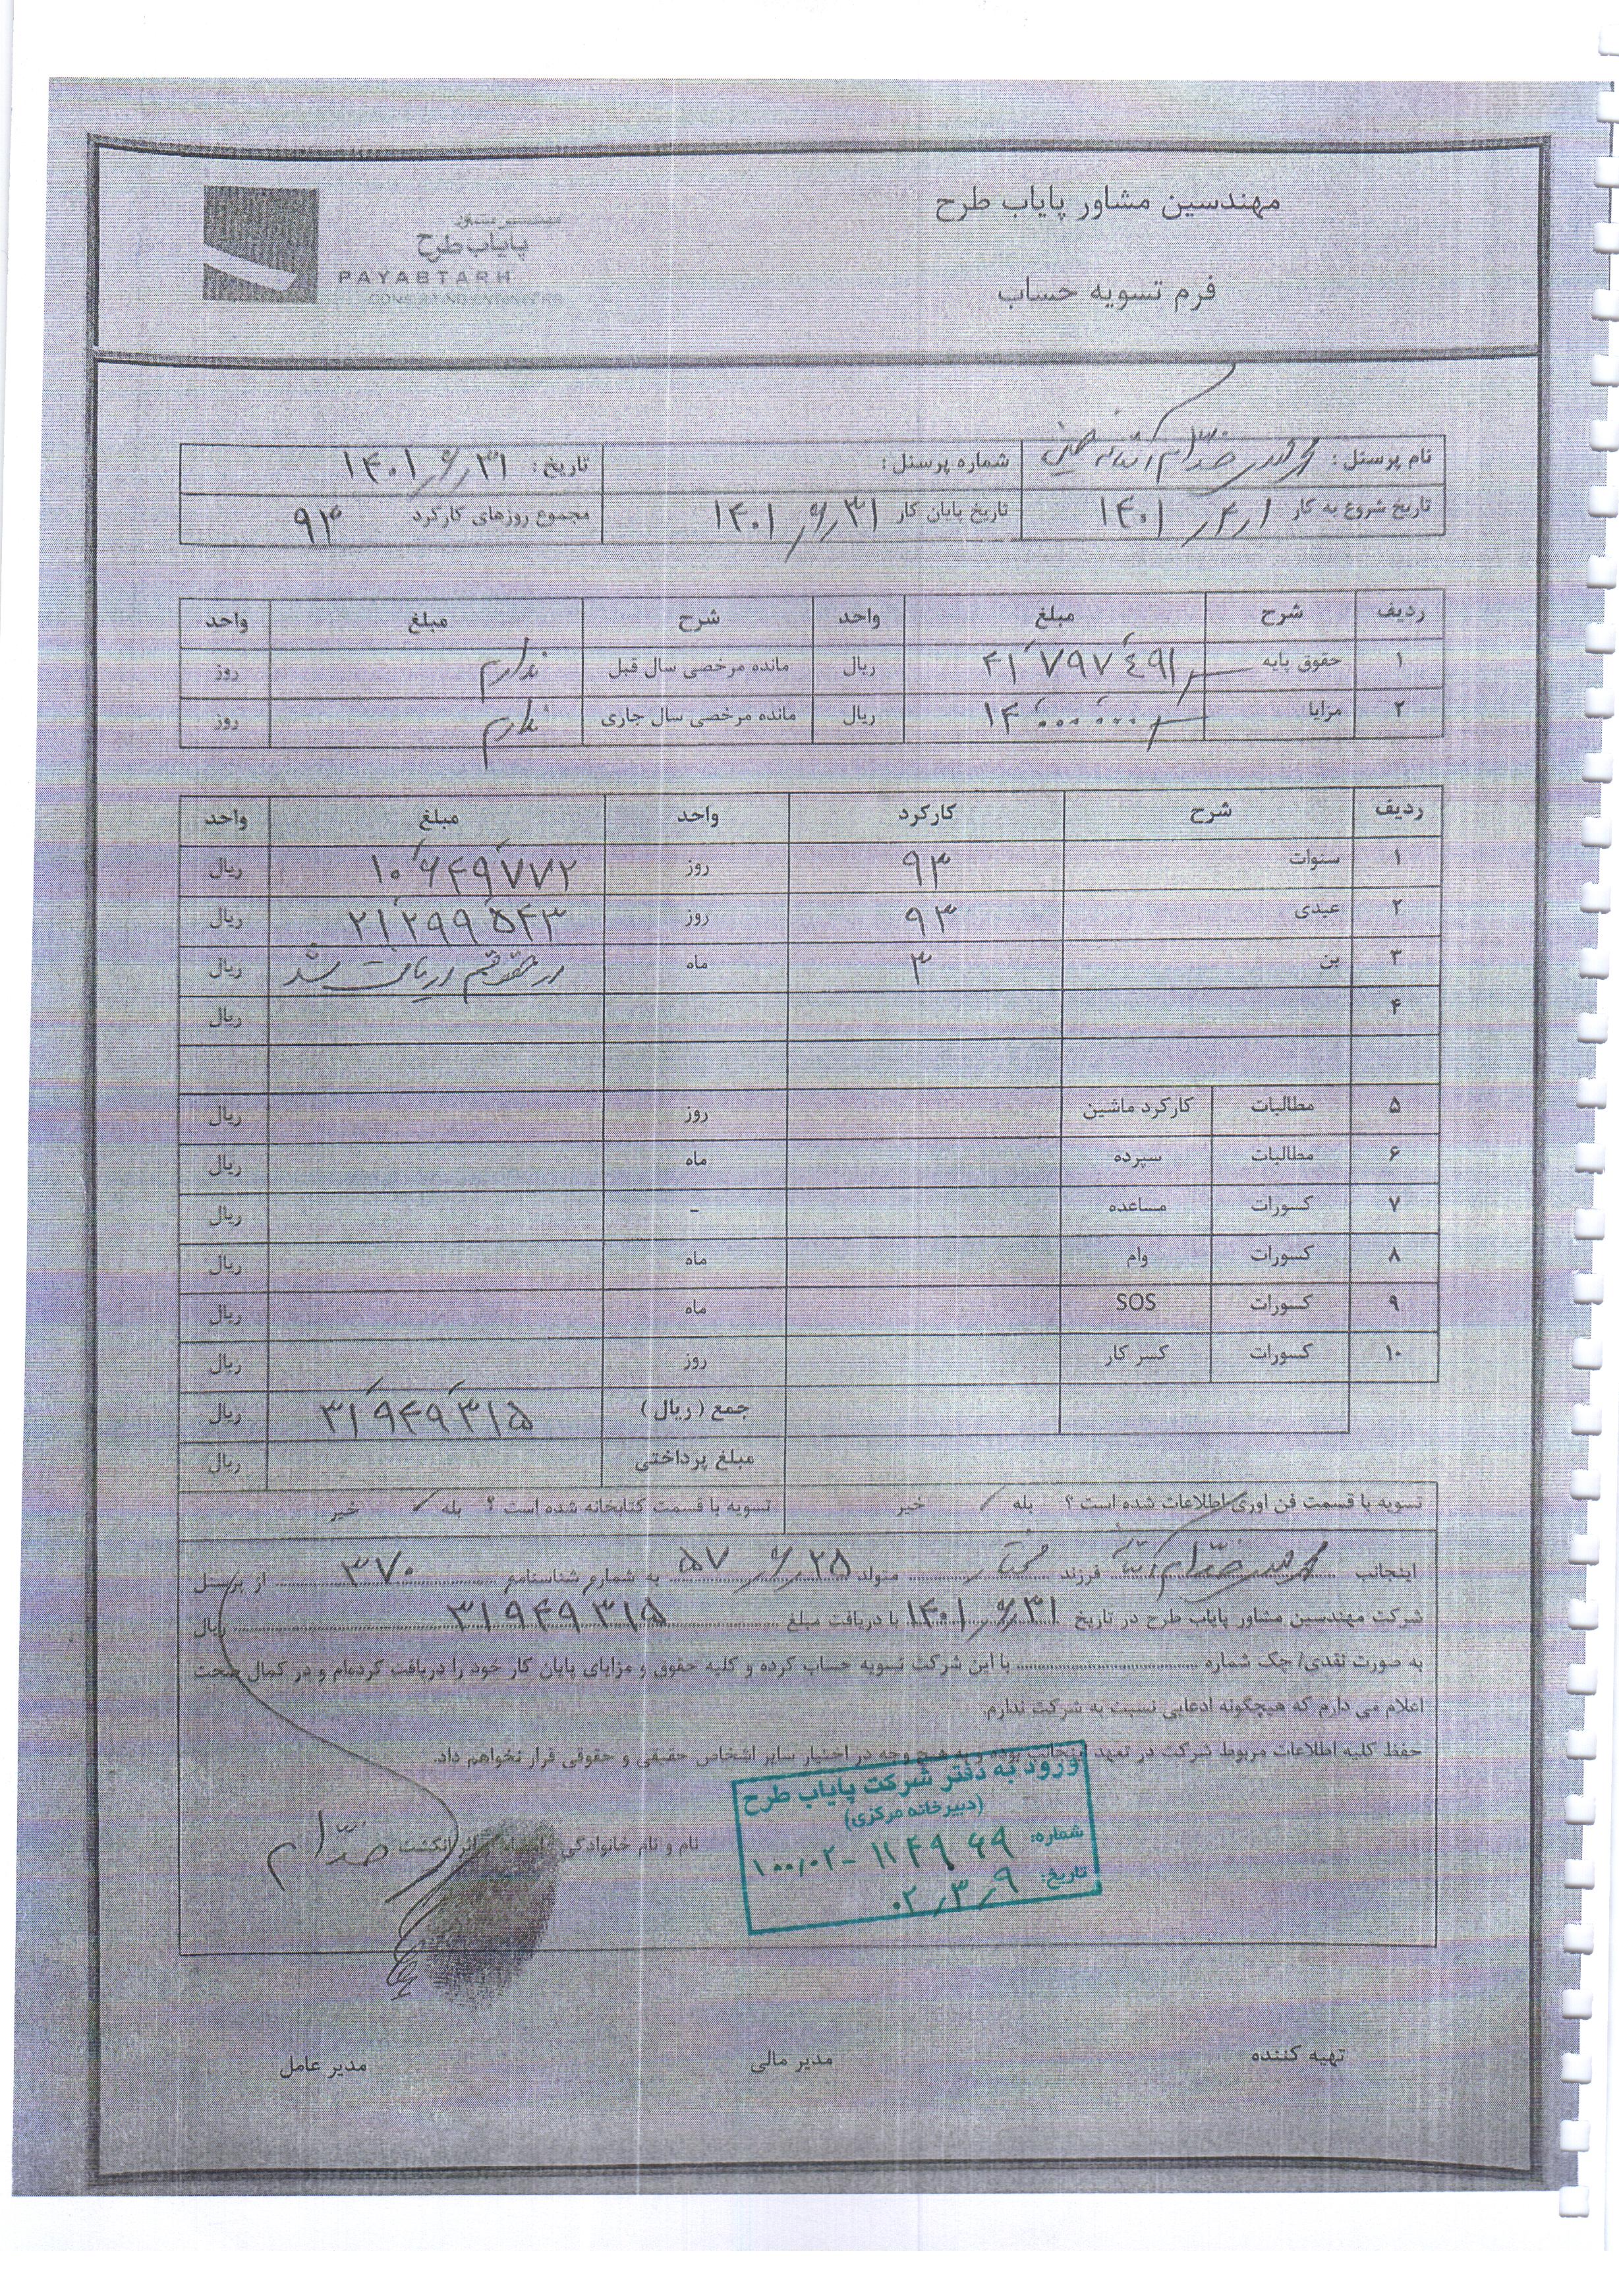 مهندسین مشاور پایاب طرح
مهندسین مشاور
پایاب طرح
PAYABTARH
فرم تسویه حساب
نام پرسنل : خدام شماره پرسنل : تاریخ : ۱۴۰۱٫۶٫۳۱
تاریخ شروع به کار ۱۴۰۱٫۴٫۱ تاریخ پایان کار ۱۴۰۱٫۶٫۳۱ مجموع روزهای کارکرد ۹۳
ردیف شرح مبلغ واحد شرح مبلغ واحد
۱ حقوق پایه ۴۱٬۷۹۷٬۴۹۱ ریال مانده مرخصی سال قبل ندارم روز
۲ مزایا ۱۴٬۰۰۰٬۰۰۰ ریال مانده مرخصی سال جاری ندارم روز
ردیف شرح کارکرد واحد مبلغ واحد
۱ سنوات ۹۳ روز ۱۰٬۶۴۹٬۷۷۲ ریال
۲ عیدی ۹۳ روز ۲۱٬۲۹۹٬۵۴۳ ریال
۳ بن ۳ ماه در حقوقم دریافت شد ریال
۴ ریال
۵ مطالبات کارکرد ماشین روز ریال
۶ مطالبات سپرده ماه ریال
۷ کسورات مساعده - ریال
۸ کسورات وام ماه ریال
۹ کسورات SOS ماه ریال
۱۰ کسورات کسر کار روز ریال
جمع ( ریال ) ۳۱٬۹۴۹٬۳۱۵ ریال
مبلغ پرداختی ریال
تسویه با قسمت فن اوری اطلاعات شده است ؟ بله ✓ خیر تسویه با قسمت کتابخانه شده است ؟ بله ✓ خیر
اینجانب خدام فرزند متولد ۵۷٫۶٫۲۵ به شماره شناسنامه ۳۷۰ از پرسنل
شرکت مهندسین مشاور پایاب طرح در تاریخ ۱۴۰۱٫۶٫۳۱ با دریافت مبلغ ۳۱۹۴۹۳۱۵ ریال
به صورت نقدی/ چک شماره با این شرکت تسویه حساب کرده و کلیه حقوق و مزایای پایان کار خود را دریافت کرده‌ام و در کمال صحت
اعلام می دارم که هیچگونه ادعایی نسبت به شرکت ندارم.
حفظ کلیه اطلاعات مربوط شرکت در تعهد اینجانب بوده و به هیچ وجه در اختیار سایر اشخاص حقیقی و حقوقی قرار نخواهم داد.
ورود به دفتر شرکت پایاب طرح
(دبیرخانه مرکزی)
شماره: ۱۰۰٫۰۲-۱۱۴۹۶۹
تاریخ: ۰۲٫۳٫۹
نام و نام خانوادگی امضاء اثر انگشت خدام
تهیه کننده مدیر مالی مدیر عامل